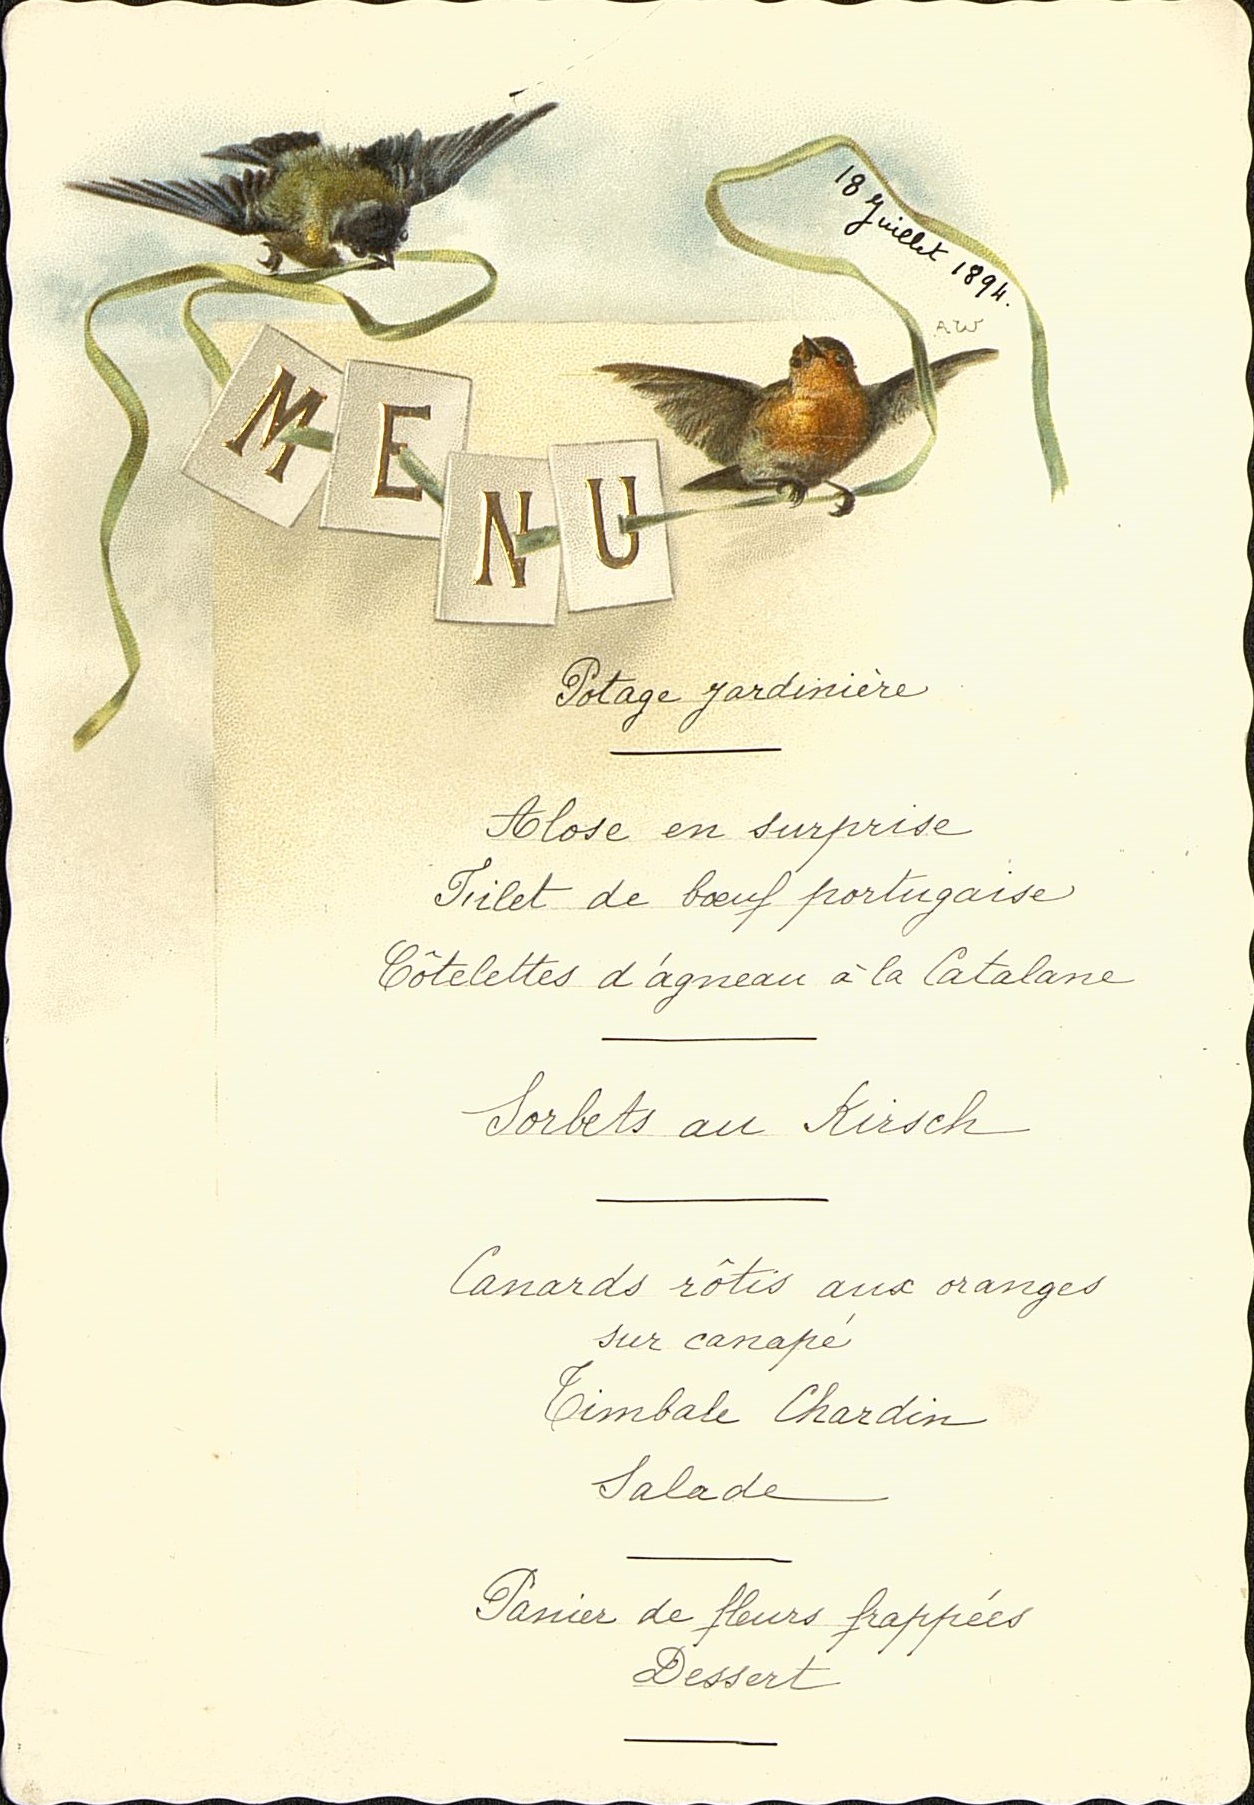 18 Juillet 1894.
A.W
MENU
Potage jardinière
Alose en surprise
Filet de bœuf portugaise
Côtelettes d'agneau à la Catalane
Sorbets au Kirsch
Canards rôtis aux oranges
sur canapé
Timbale Chardin
Salade
Panier de fleurs frappées
Dessert